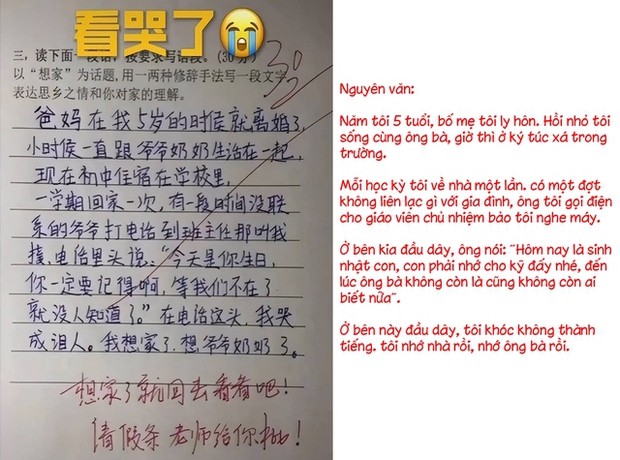 看哭了😭
三，读下面一段话，按要求写话段。(30分)
以“想家”为话题，用一两种修辞手法写一段文字，
表达思乡之情和你对家的理解。
30
爸妈在我5岁的时侯就离婚了，
小时侯一直跟爷爷奶奶生活在一起，
现在初中住宿在学校里，
一学期回家一次，有一段时间没联
系的爷爷打电话到班主任那叫我
接，电话里头说：“今天是你生日，
你一定要记得啊，等我们不在了
就没人知道了。”在电话这头，我哭
成泪人。我想家了，想爷爷奶奶了。
想家了就回去看看吧！
请假条老师给你批！
Nguyên văn:
Năm tôi 5 tuổi, bố mẹ tôi ly hôn. Hồi nhỏ tôi
sống cùng ông bà, giờ thì ở ký túc xá trong
trường.
Mỗi học kỳ tôi về nhà một lần. có một đợt
không liên lạc gì với gia đình, ông tôi gọi điện
cho giáo viên chủ nhiệm bảo tôi nghe máy.
Ở bên kia đầu dây, ông nói: "Hôm nay là sinh
nhật con, con phải nhớ cho kỹ đấy nhé, đến
lúc ông bà không còn là cũng không còn ai
biết nữa".
Ở bên này đầu dây, tôi khóc không thành
tiếng. tôi nhớ nhà rồi, nhớ ông bà rồi.